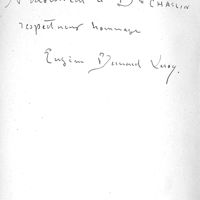 A Monsieur le Dr CHASLIN
respectueux hommage
Eugène Bernard Leroy.